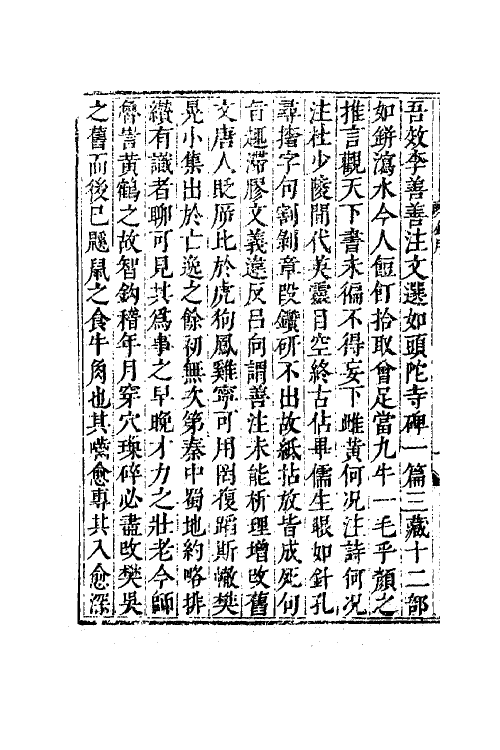 吾效李善善注文選如頭陀寺碑一篇三藏十二部
如缾瀉水今人餖飣拾取曾足當九牛一毛乎顏之
推言觀天下書未徧不得妄下雌黃何况注詩何况
注杜少陵間代英靈目空終古佔畢儒生眼如針孔
尋撦字句割剝章段鑽硏不出故紙拈放皆成死句
旨趣滯膠文義違反吕向謂善注未能析理增改舊
文唐人貶斥比於虎狗鳳雞寧可用罔復蹈斯轍樊
晃小集出於亡逸之餘初無次第秦中蜀地約略排
纘有識者聊可見其爲事之早晚才力之壯老今師
魯訔黃鶴之故智鈎稽年月穿穴瑣碎必盡改樊吳
之舊而後已鼷鼠之食牛角也其嚙愈專其入愈深